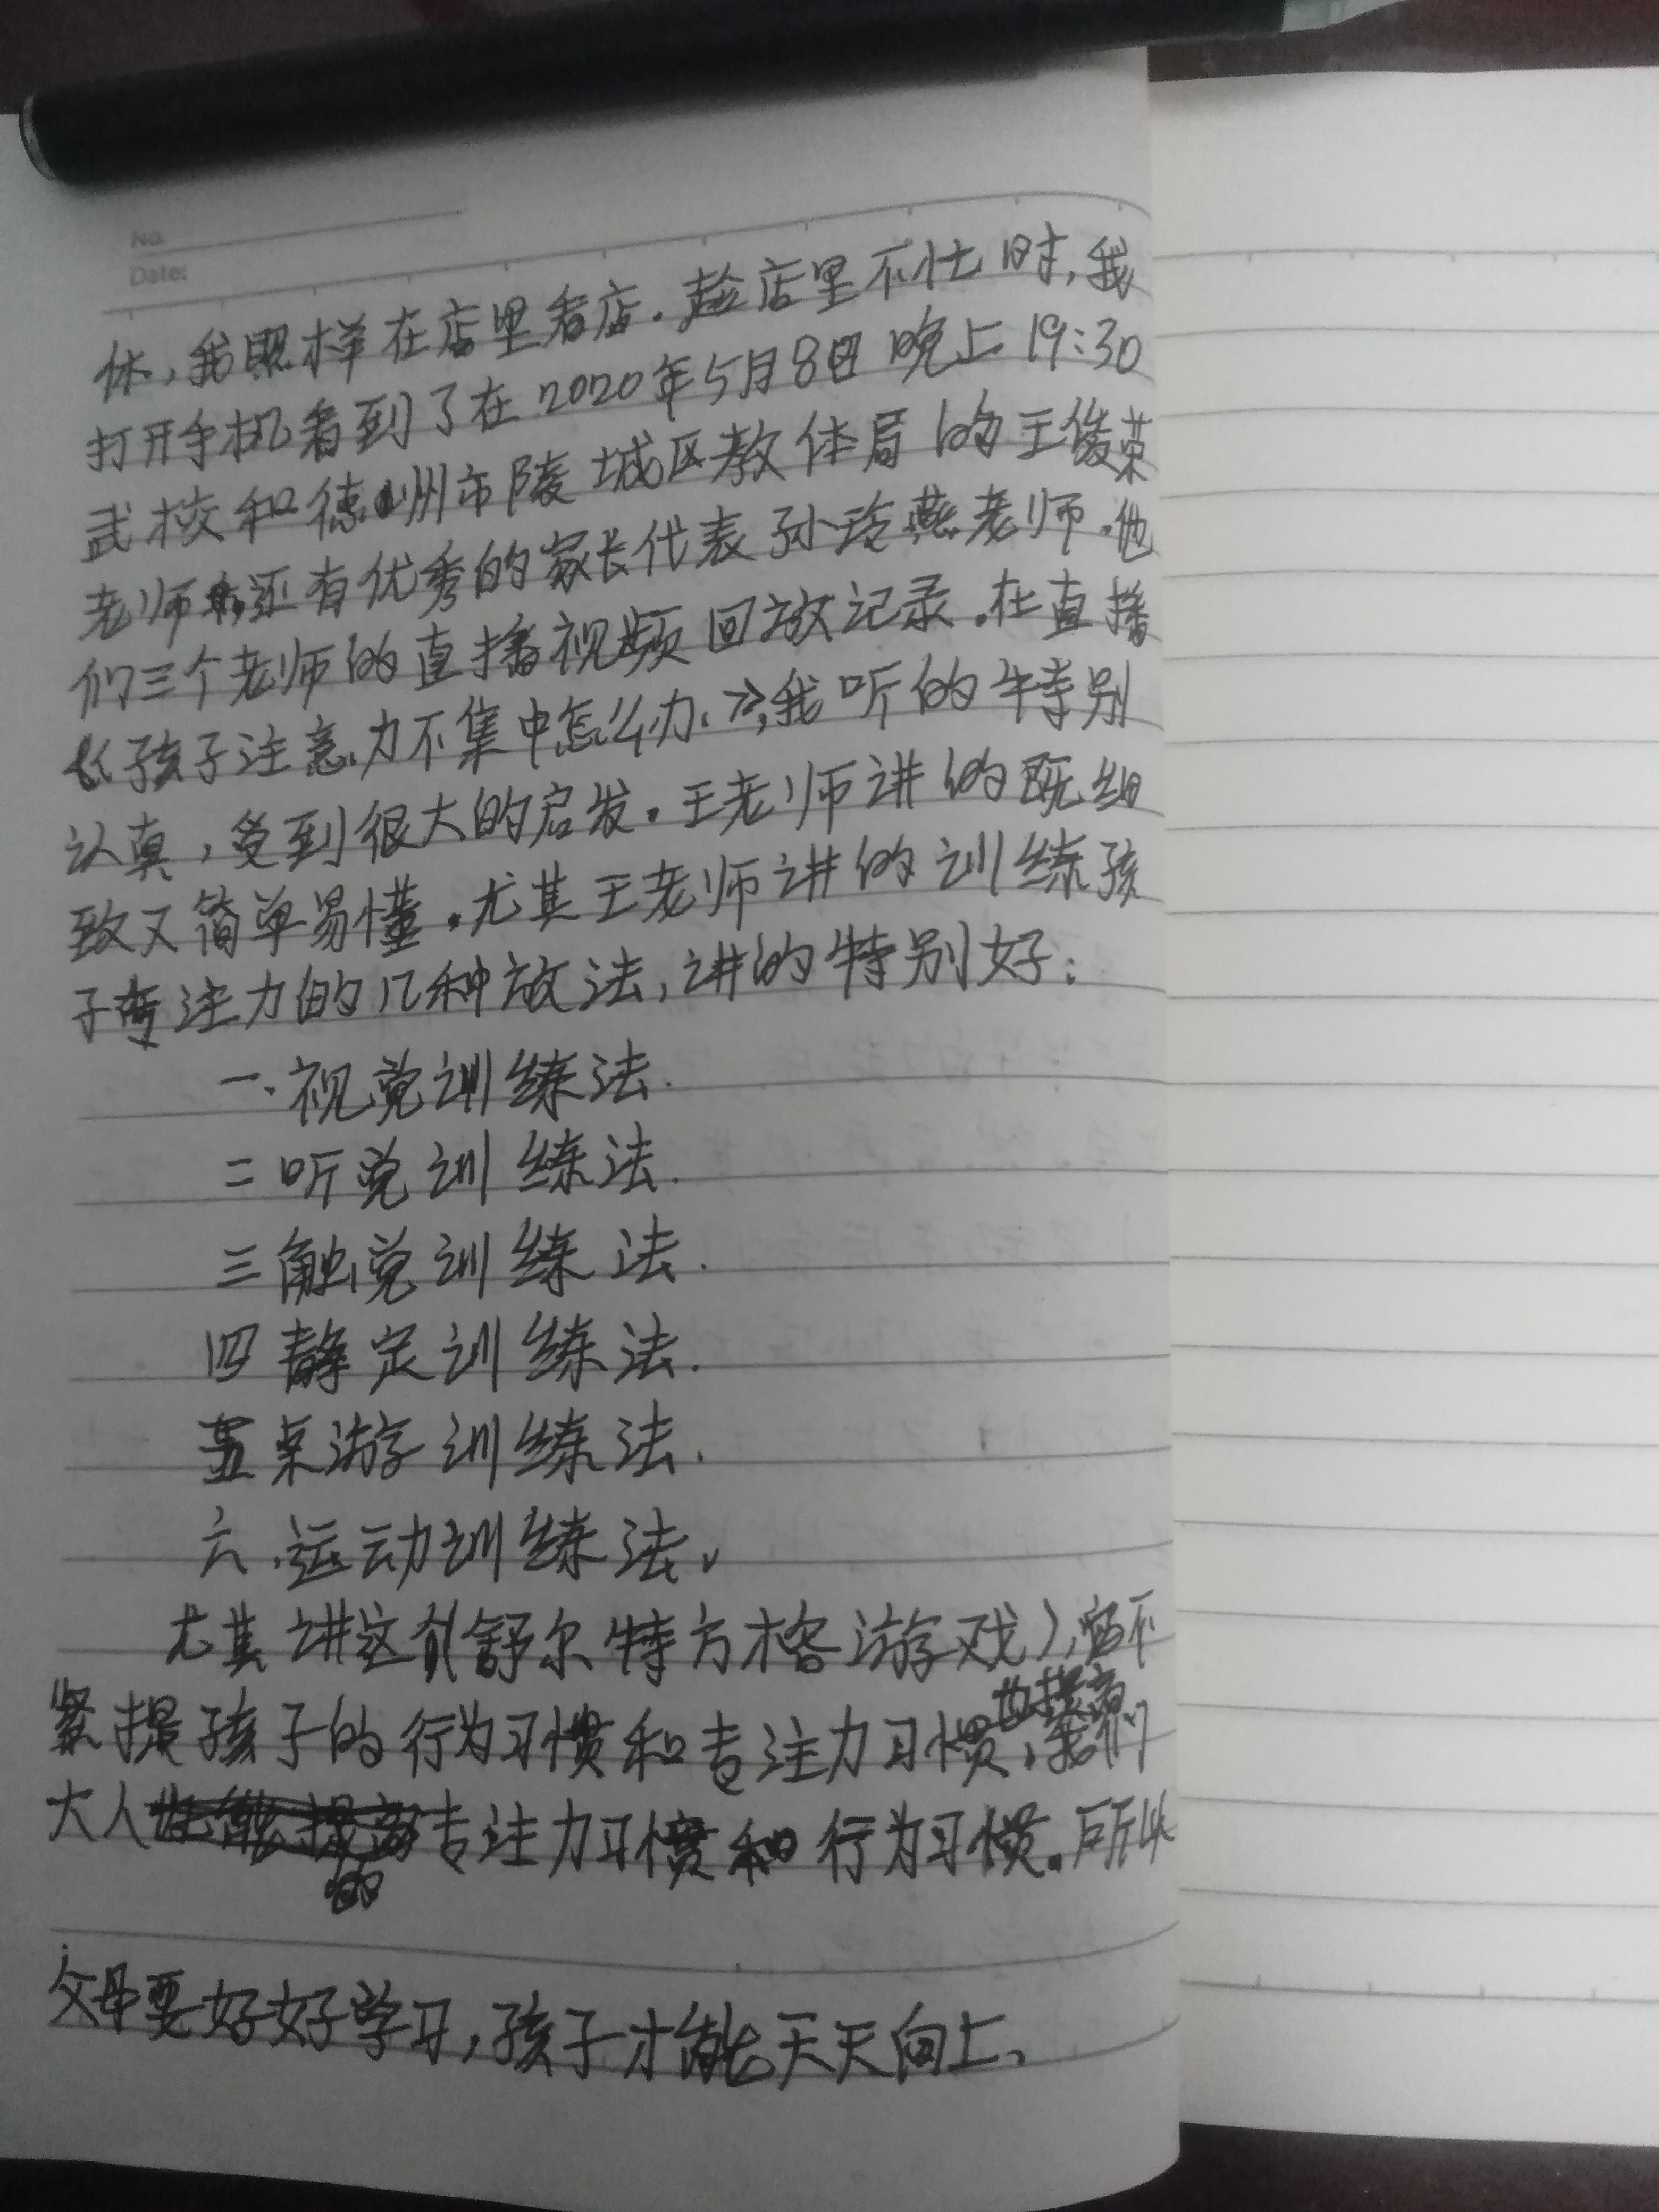 No.
Date:
休，我照样在店里看店。趁店里不忙时，我
打开手机看到了在2020年5月8日晚上19:30
武校和德州市陵城区教体局的王俊荣
老师，还有优秀的家长代表孙玲燕老师。他
们三个老师的直播视频回放记录。在直播
《孩子注意力不集中怎么办》，我听的特别
认真，受到很大的启发。王老师讲的既细
致又简单易懂。尤其王老师讲的训练孩
子专注力的几种放法，讲的特别好：
一、视觉训练法.
二听觉训练法.
三触觉训练法.
四静定训练法.
五桌游训练法.
六、运动训练法、
尤其讲这个(舒尔特方格游戏)，不
紧提孩子的行为习惯和专注力习惯，也提高我们
大人的专注力习惯和行为习惯。所以
父母要好好学习，孩子才能天天向上、